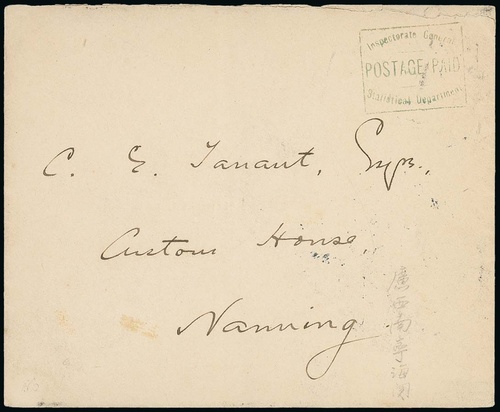 Inspectorate General
POSTAGE PAID
Statistical Department
C. E. Tanant, Esqre.,
Custom House,
Nanning
廣西南寧海関